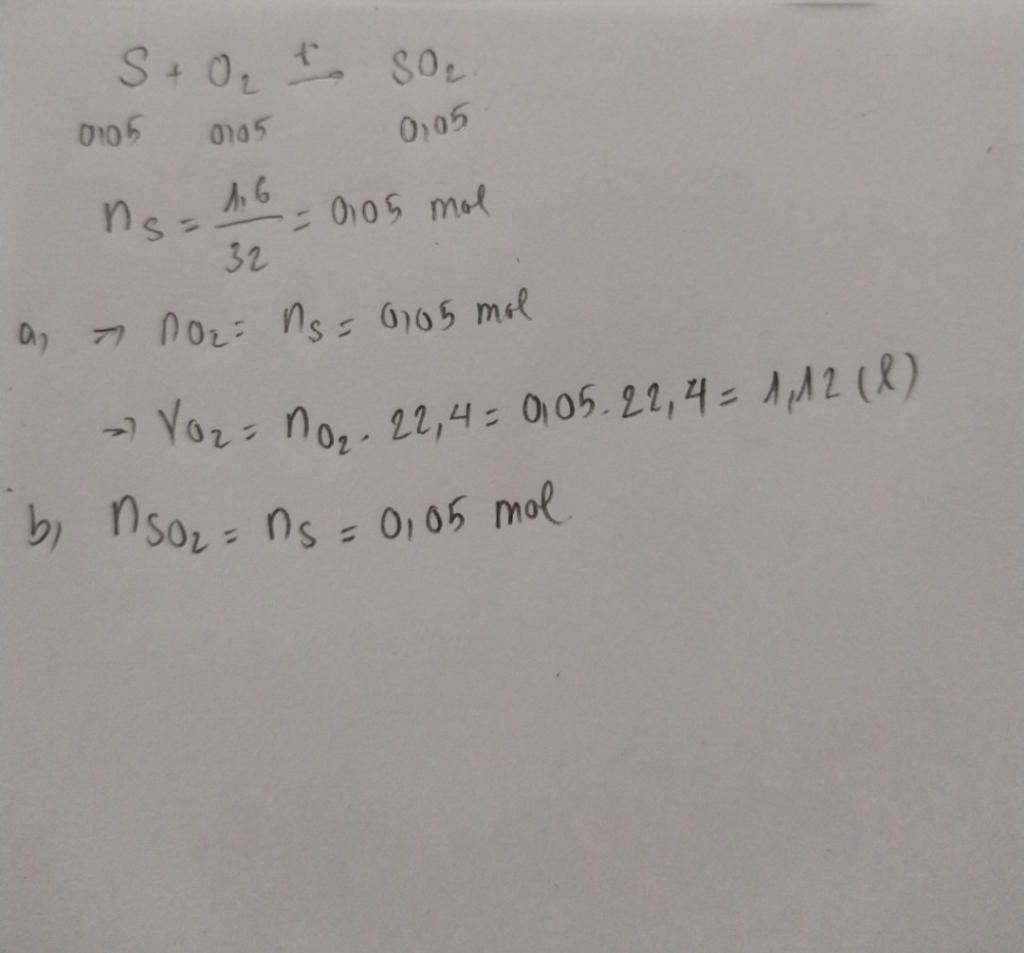 S + O₂ t°→ SO₂
0,05 0,05 0,05
nS = 1,6/32 = 0,05 mol
a, → nO₂ = nS = 0,05 mol
→ VO₂ = nO₂ . 22,4 = 0,05 . 22,4 = 1,12 (l)
b, nSO₂ = nS = 0,05 mol.